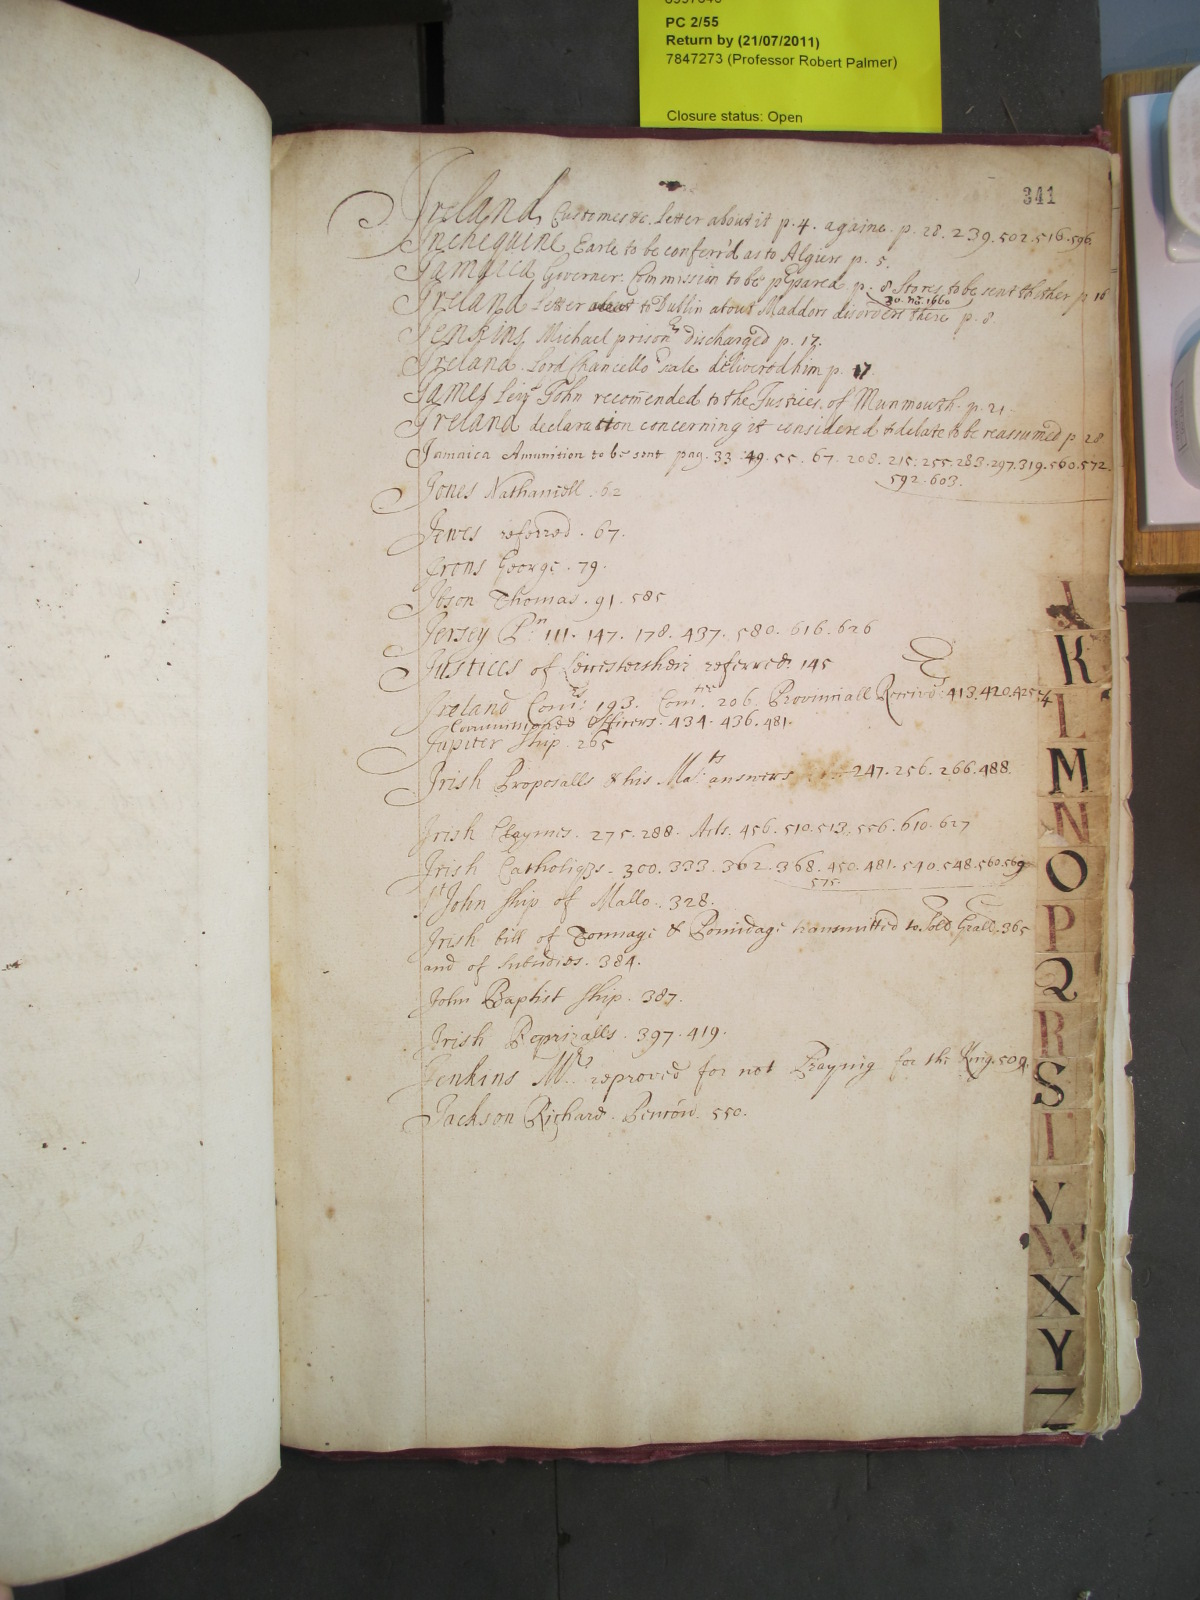 PC 2/55
Return by (21/07/2011)
7847273 (Professor Robert Palmer)
Closure status: Open
341
Ireland Customes &c. Letter about it p. 4. againe p. 28. 239. 502. 516. 596.
Inchequine Earle to be conferr'd as to Algiers p. 5.
Jamaica Governer: Commission to be prepared p: 8 Stores to be sent thither p 16
20. No. 1660
Ireland Letter to Dublin about Maddors disorders there p. 8.
Jenkins Michael prisonr discharged p. 17.
Ireland. Lord Chancello seale delivered him p. 17.
James John recomended to the Justices of Munmouth p. 21.
Ireland declaration concerning it considered & delate to be reassumed p 28
Jamaica Amunition to be sent pag. 33. 49. 55. 67. 208. 215. 255. 283. 297. 319. 560. 572.
592. 603.
Jones Nathaniell. 62
Jewes referred. 67.
Irons George. 79.
Ibson Thomas. 91. 585
Jersey Pn 111. 147. 178. 437. 580. 616. 626
Justices of Leicestersheir referred. 145
Ireland Comrs 193. 206. Provinciall Receivrs 413. 420. 425
Commissioned Officers. 434. 436. 481.
Jupiter ship. 265
Irish Proposalls & his Mats answers 247. 256. 266. 488.
Irish Claymes. 275. 288. Acts. 456. 510. 513. 556. 610. 627
Irish Catholiqs. 300. 333. 362. 368. 450. 481. 540. 548. 560. 569
575.
St John ship of Mallo. 328.
Irish bill of Tonnage & Poundage transmitted to Grall. 365
and of subsidies. 384.
John Baptist ship. 387.
Irish Reprizalls. 397. 419.
Jenkins Mr reproved for not Praynig for the King. 509.
Jackson Richard. 550.
I
K
L
M
N
O
P
Q
R
S
T
V
W
X
Y
Z